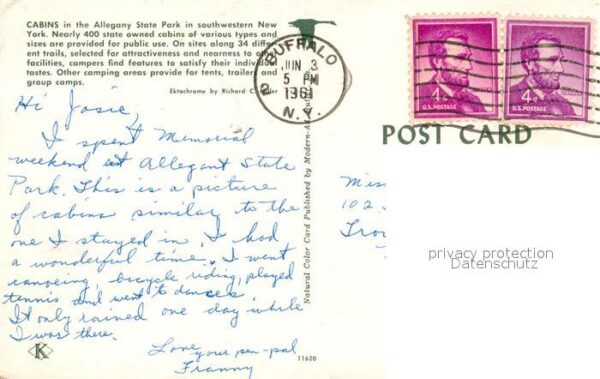 CABINS in the Allegany State Park in southwestern New
York. Nearly 400 state owned cabins of various types and
sizes are provided for public use. On sites along 34 differ-
ent trails, selected for attractiveness and nearness to other
facilities, campers find features to satisfy their individual
tastes. Other camping areas provide for tents, trailers and
group camps.
Ektachrome by Richard C.
BUFFALO
JUN 3
5 PM
1961
N.Y.
4¢
U.S. POSTAGE
4¢
U.S. POSTAGE
POST CARD
Hi Josie,
I spent Memorial
weekend at Allegant State
Park. This is a picture
of cabins similar to the
one I stayed in. I had
a wonderful time. I went
canoeing, bicycle riding, played
tennis and went to dances.
It only rained one day while
I was there.
Love,
your pen-pal
Franny
K
11620
Natural Color Card Published by Modern-A
Miss
102
Tro
privacy protection
Datenschutz